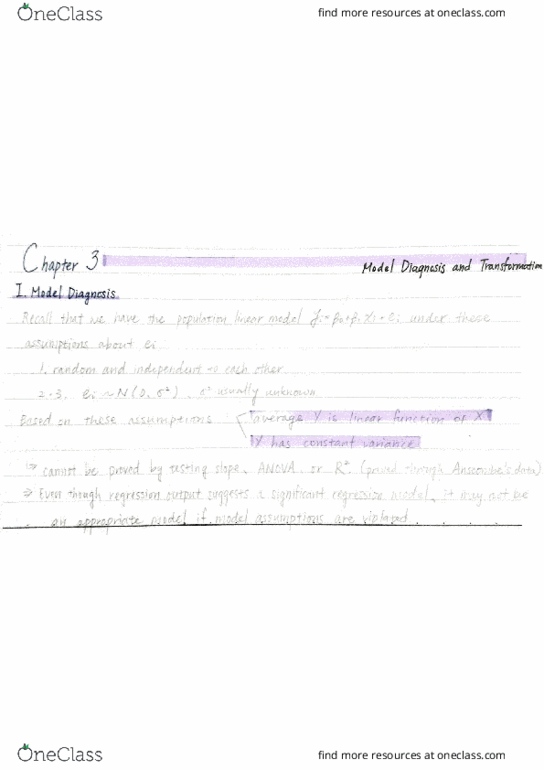 OneClass find more resources at oneclass.com
Chapter 3
Model Diagnosis and Transformation
I. Model Diagnosis
Recall that we have the population linear model yi = β0 + β1 Xi + ei under these
assumptions about ei
1. random and independent to each other
2.3. ei ~ N(0, σ²), σ² usually unknown
Based on these assumptions average Y is linear function of X
Y has constant variance
⇒ cannot be proved by testing slope, ANOVA, or R². (proved through Anscombe's data)
⇒ Even though regression output suggests a significant regression model, it may not be
an appropriate model if model assumptions are violated.
OneClass find more resources at oneclass.com